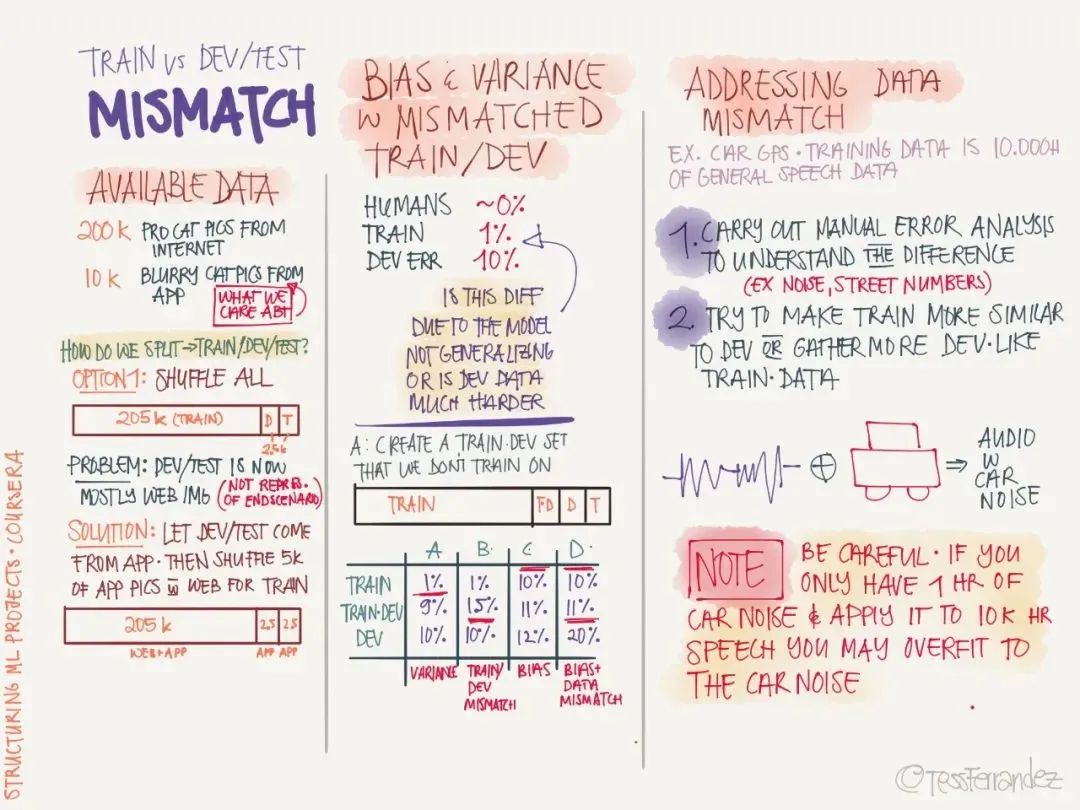 TRAIN vs DEV/TEST
MISMATCH
AVAILABLE DATA
200k PRO CAT PICS FROM
INTERNET
10k BLURRY CAT PICS FROM
APP
WHAT WE
CARE ABT
HOW DO WE SPLIT→TRAIN/DEV/TEST?
OPTION1: SHUFFLE ALL
205k (TRAIN) D T
2.5k
PROBLEM: DEV/TEST IS NOW
MOSTLY WEB IMG (NOT REPRES.
OF ENDSCENARIO)
SOLUTION: LET DEV/TEST COME
FROM APP. THEN SHUFFLE 5K
OF APP PICS W WEB FOR TRAIN
205k 2.5 2.5
WEB+APP APP APP
BIAS & VARIANCE
W MISMATCHED
TRAIN/DEV
HUMANS ~0%
TRAIN 1%
DEV ERR 10%
IS THIS DIFF
DUE TO THE MODEL
NOT GENERALIZING
OR IS DEV DATA
MUCH HARDER
A: CREATE A TRAIN·DEV SET
THAT WE DONT TRAIN ON
TRAIN TD D T
A B C D
TRAIN 1% 1% 10% 10%
TRAIN·DEV 9% 15% 11% 11%
DEV 10% 10% 12% 20%
VARIANCE
TRAIN/
DEV
MISMATCH
BIAS
BIAS+
DATA
MISMATCH
ADDRESSING DATA
MISMATCH
EX. CAR GPS · TRAINING DATA IS 10.000H
OF GENERAL SPEECH DATA
1. CARRY OUT MANUAL ERROR ANALYSIS
TO UNDERSTAND THE DIFFERENCE
(EX NOISE, STREET NUMBERS)
2. TRY TO MAKE TRAIN MORE SIMILAR
TO DEV OR GATHER MORE DEV·LIKE
TRAIN·DATA
⊕ ⇒ AUDIO
W
CAR
NOISE
NOTE BE CAREFUL · IF YOU
ONLY HAVE 1 HR OF
CAR NOISE & APPLY IT TO 10K HR
SPEECH YOU MAY OVERFIT TO
THE CAR NOISE
STRUCTURING ML PROJECTS · COURSERA
©TessFerrandez